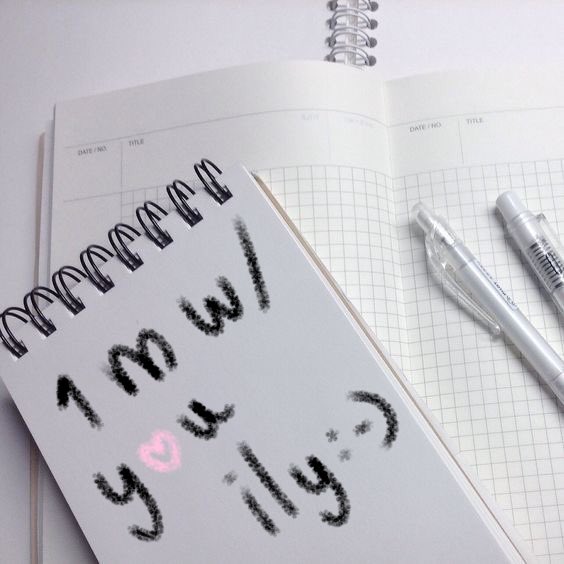 DATE / NO.
TITLE
DATE / NO.
TITLE
1 m w/
y♡u
ily :-)